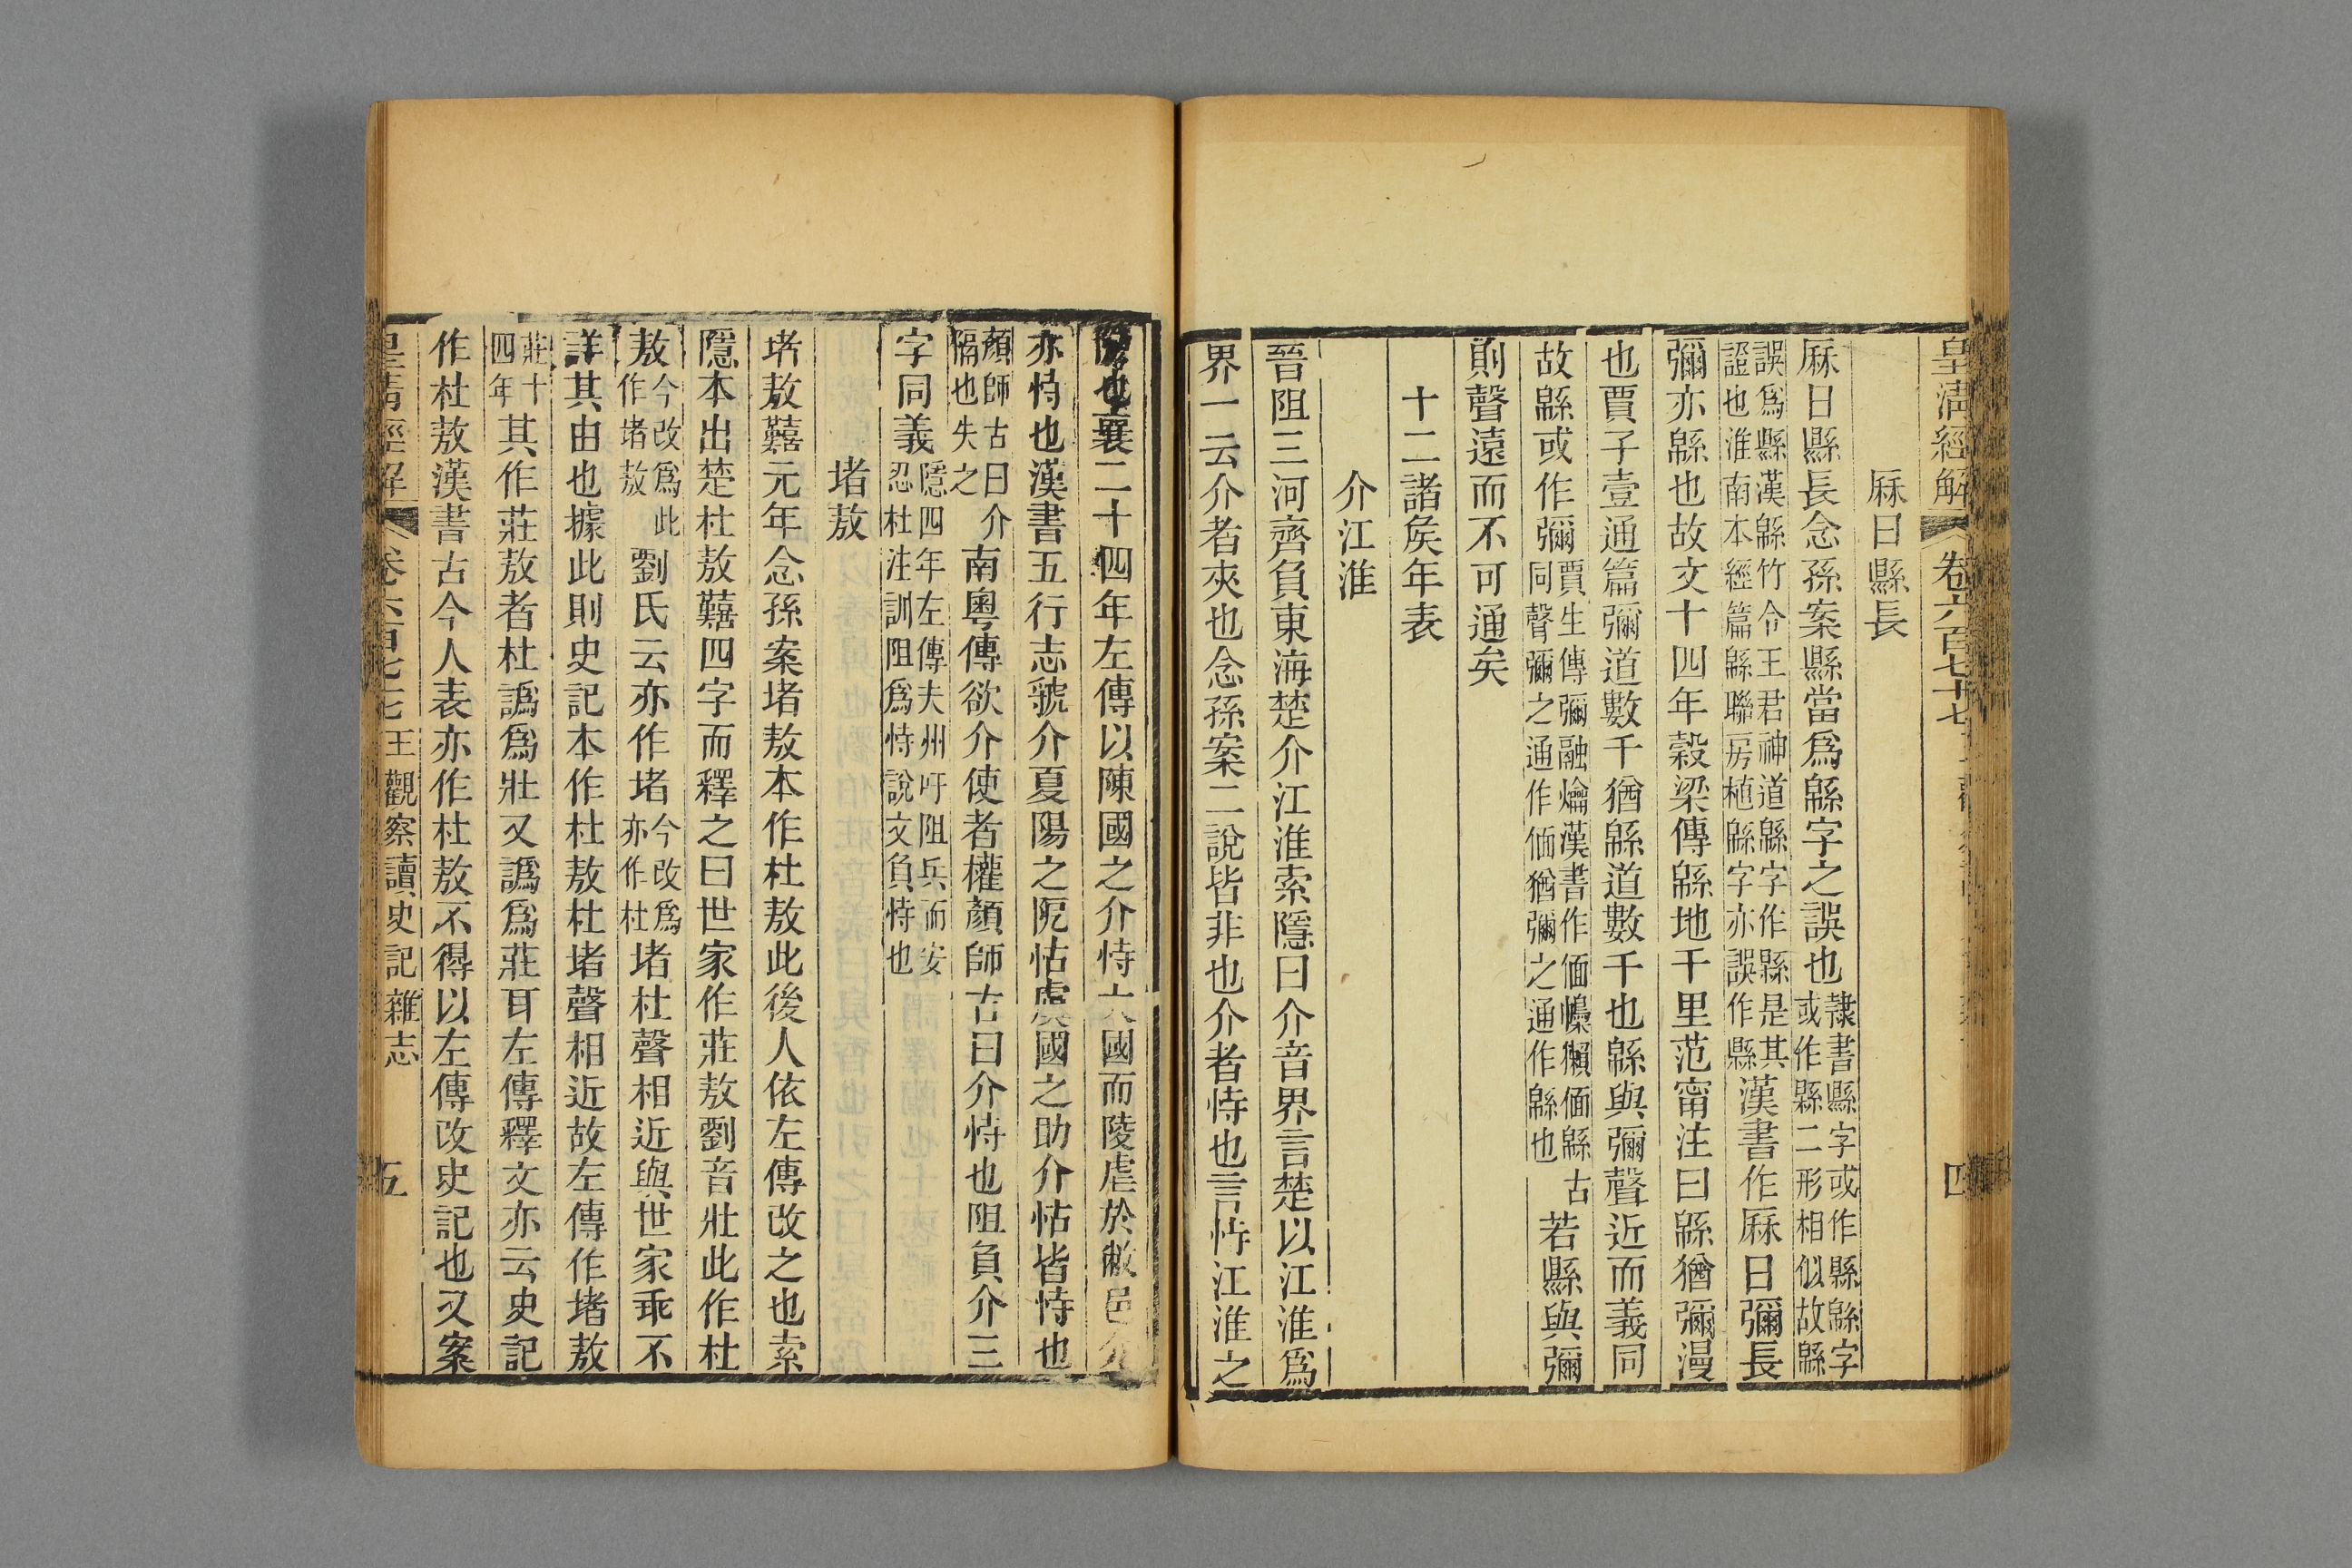 皇清經解 卷六百七十七 四
厤日縣長
厤日縣長念孫案縣當爲緜字之誤也隸書縣字或作縣緜字或作縣二形相似故緜
誤爲縣漢緜竹令王君神道緜字作縣是其證也淮南本經篇緜聯房植緜字亦誤作縣漢書作厤日彌長
彌亦緜也故文十四年穀梁傳緜地千里范甯注曰緜猶彌漫
也賈子壹通篇彌道數千猶緜道數千也緜與彌聲近而義同
故緜或作彌賈生傳彌融爚漢書作偭蟂獺偭緜古同聲彌之通作偭猶彌之通作緜也若縣與彌
則聲遠而不可通矣
十二諸矦年表
介江淮
晉阻三河齊負東海楚介江淮索隱曰介音界言楚以江淮爲
界一云介者夾也念孫案二說皆非也介者恃也言恃江淮之
險也襄二十四年左傳以陳國之介恃大國而陵虐於敝邑介
亦恃也漢書五行志虢介夏陽之阸怙虞國之助介怙皆恃也
顏師古曰介隔也失之南粵傳欲介使者權顏師古曰介恃也阻負介三
字同義隱四年左傳夫州吁阻兵而安忍杜注訓阻爲恃說文負恃也
堵敖
堵敖囏元年念孫案堵敖本作杜敖此後人依左傳改之也索
隱本出楚杜敖囏四字而釋之曰世家作莊敖劉音壯此作杜
敖今改爲此作堵敖劉氏云亦作堵今改爲亦作杜堵杜聲相近與世家乖不
詳其由也據此則史記本作杜敖杜堵聲相近故左傳作堵敖
莊十四年其作莊敖者杜譌爲壯又譌爲莊耳左傳釋文亦云史記
作杜敖漢書古今人表亦作杜敖不得以左傳改史記也又案
皇清經解 卷六百七七 王觀察讀史記雜志 五